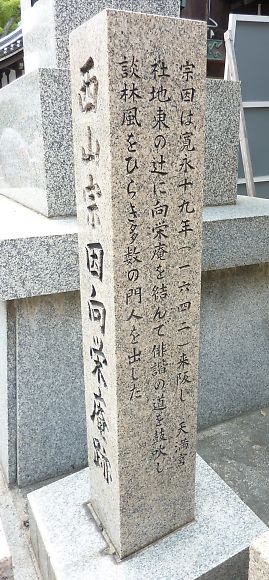 西山宗因向栄庵跡
宗因は寛永十九年（一六四二）来阪し 天満宮
社地東の辻に向栄庵を結んで俳諧の道を鼓吹し
談林風をひらき多数の門人を出した